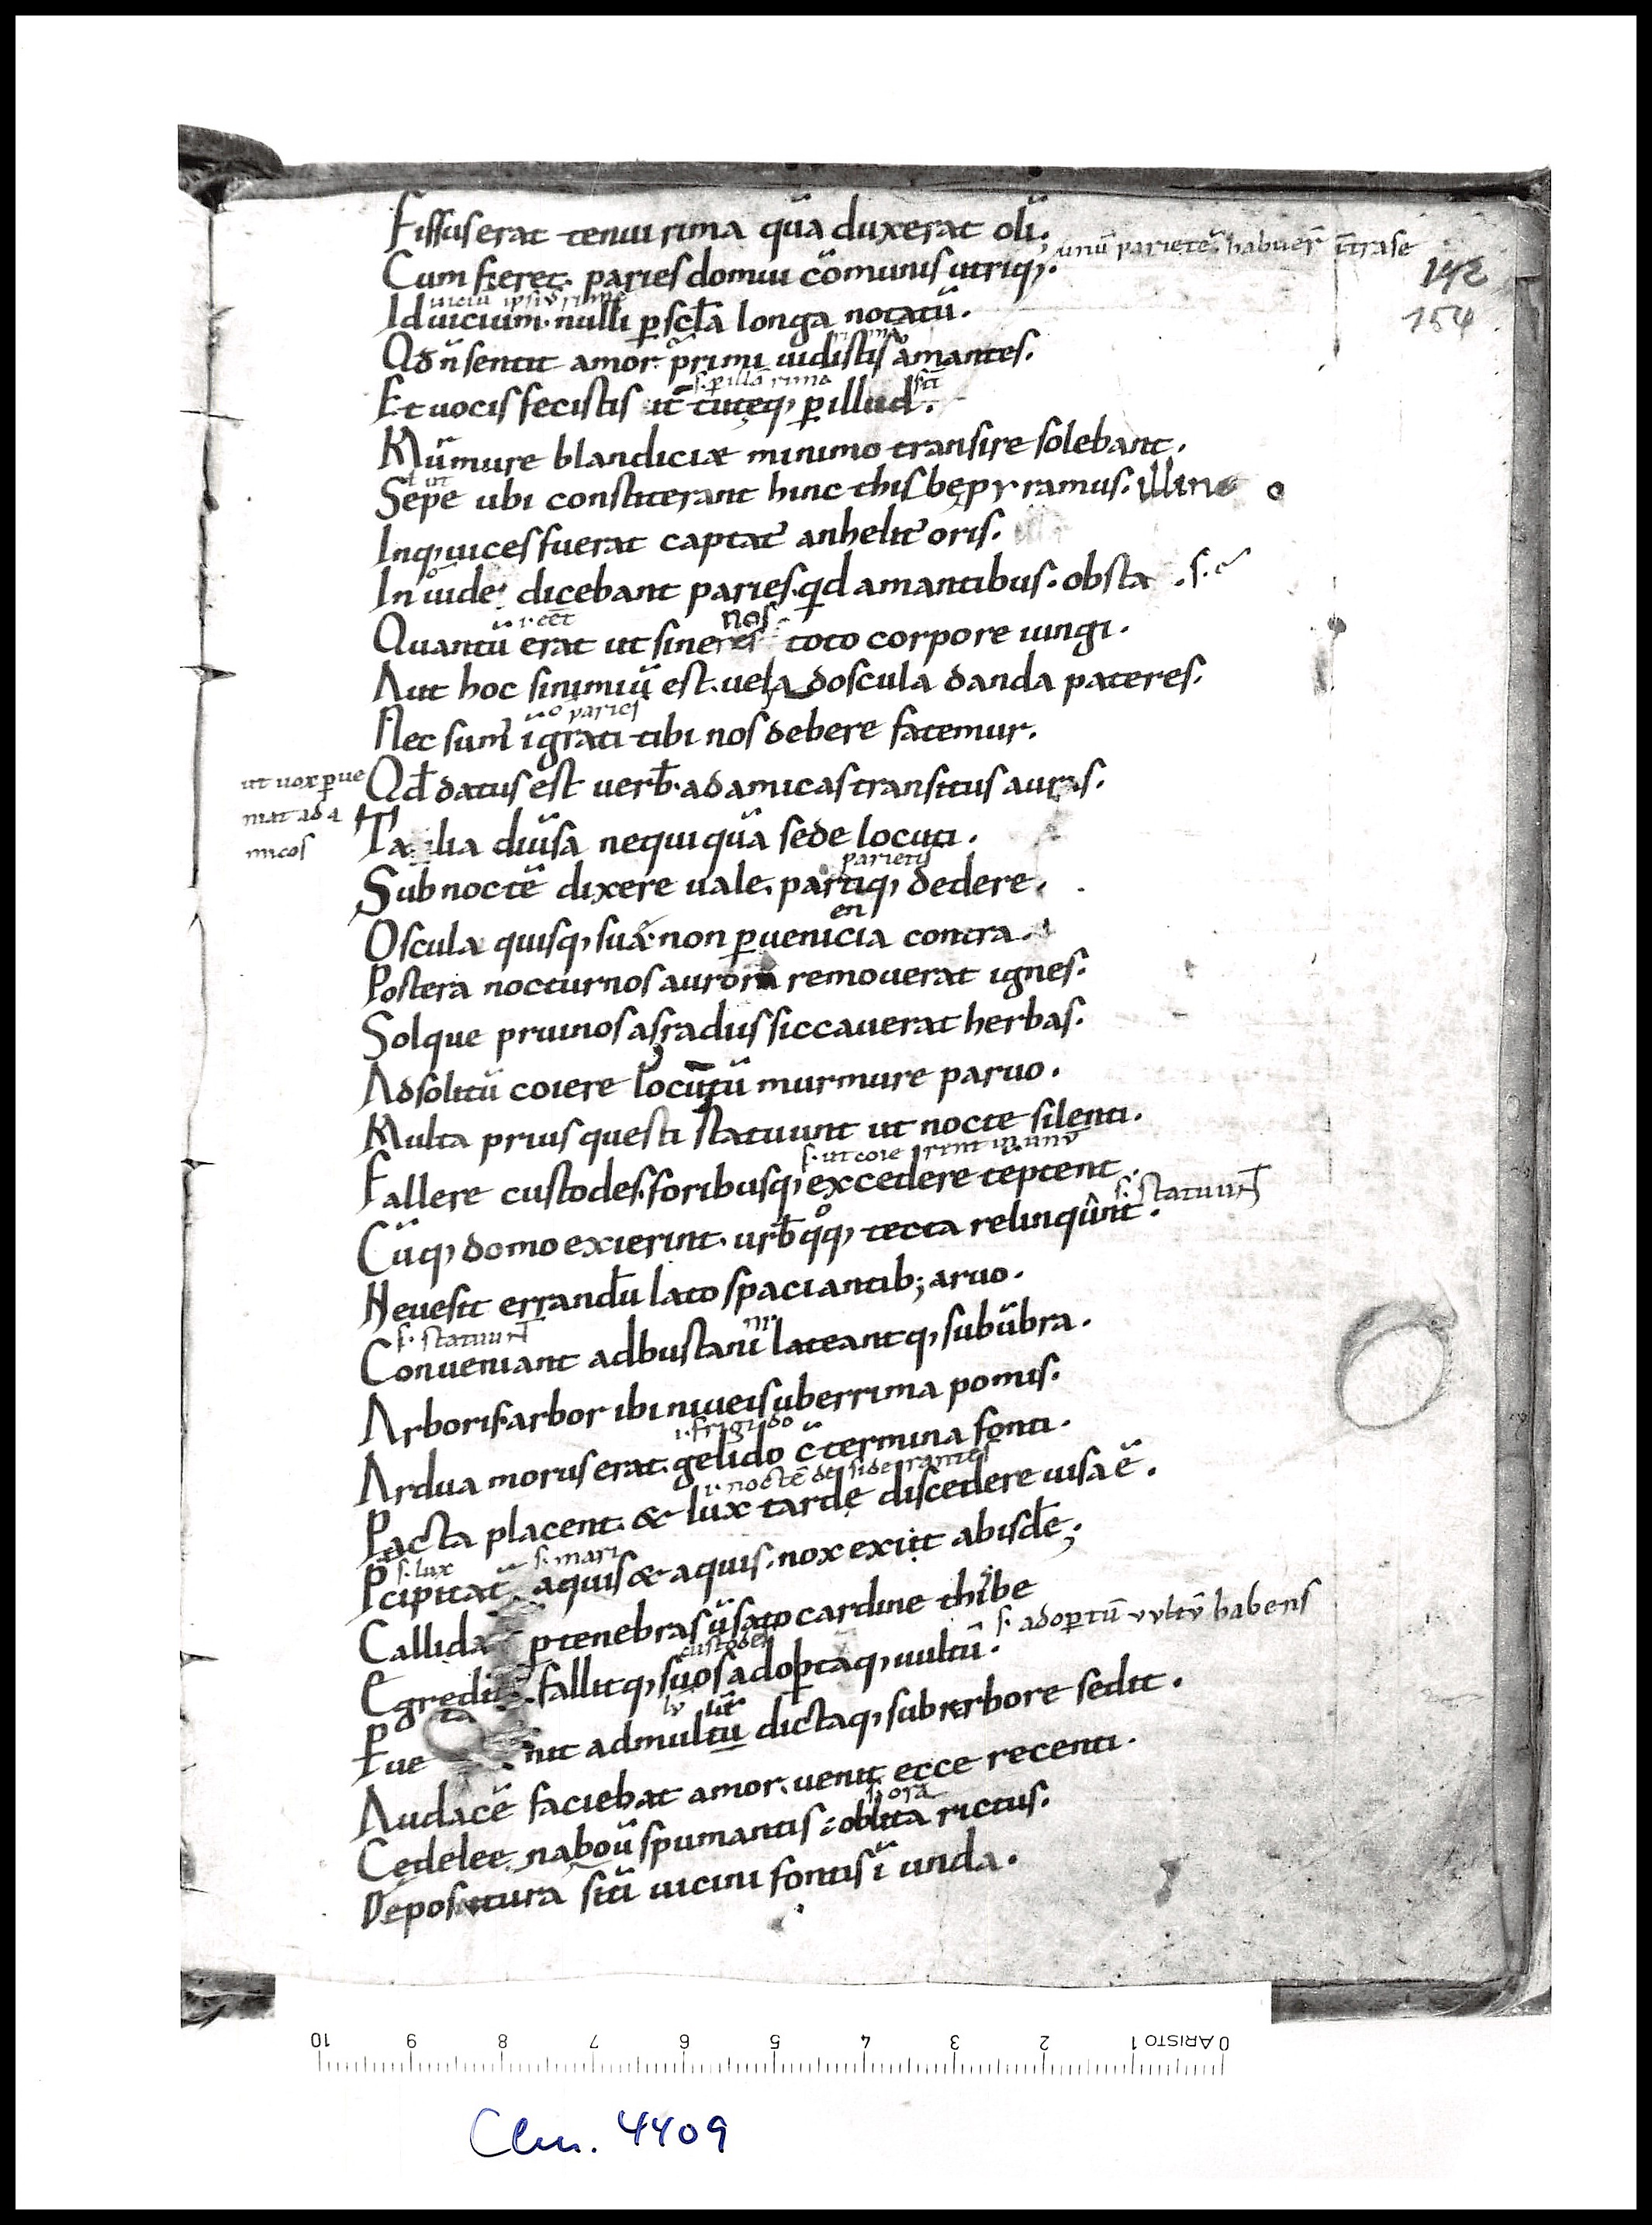 Fissus erat tenui rima quā duxerat olī.
unū parietē habuer̄ īt̄ra se
Cum fieret. paries domui cōmunis utriq;.
142
154
uiciū ipsius rimę
Id uicium. nulli p scła longa notatū.
Qđ n̄ sentit amor. p̄rimi uidistis amantes.
s. p illā rimā
Et uocis fecistis it̄ tuteq; p illud.
Mūmure blandiciæ minimo transire solebant.
ł ut
Sepe ubi constiterant hinc thisbę pyramus. illinc
Inq; uices fuerat captat᷒ anhelit᷒ oris.
Inuide. dicebant paries. qd amantibus. obsta
nos
Quantū erat ut sineres toto corpore iungi.
Aut hoc si nimiū est. uel ad oscula danda pateres.
o paries
Nec sum᷒ īgrati tibi nos debere fatemur.
ut uox pue
niat ad a
micos
Qđ datus est uerb̄. ad amicas transitus auras.
Talia diuisa nequiquā sede locuti.
parieti
Sub noctē dixere uale. partiq; dedere.
en
Oscula quisq; suæ. non puenicia contra.
Postera nocturnos aurora remouerat ignes.
Solque pruinosas radus siccauerat herbas.
Ad solitū coiere locū. tū murmure paruo.
Multa prius questi statuunt ut nocte silenti.
s. ut coie rent in unū
Fallere custodes. foribusq; excedere teptent.
s. statuunt̄
Cūq; domo exierint. urb̄ qq; tecta relinqūnt.
Neue sit errandū lato spaciantib; aruo.
s. statuunt̄
Conueniant ad busta nini lateantq; sub ūbra.
Arboris. arbor ibi niueis uberrima pomis.
i. frigido
Ardua morus erat. gelido c̄termina fonti.
i. noctē desiderantes
Pacta placent. & lux tarde discedere uisa ē.
s. lux
s. mari
P̄cipitat᷒ aquis & aquis. nox exiit abisdē;
Callida p tenebras ūsato cardine thisbe
custodes
s. adoptū uultū habens
Egredit᷒. fallitq; suos adoptaq; uultū.
Pue nit ad multū dictaq; sub arbore sedit.
Audacē faciebat amor. uenit ecce recenti.
s. ora
Cędelee. na boū spumantis oblita rictus.
Depositura sitī uicini fontis ī unda.
10 9 8 7 6 5 4 3 2 1 0 ARISTO
Clm. 4409